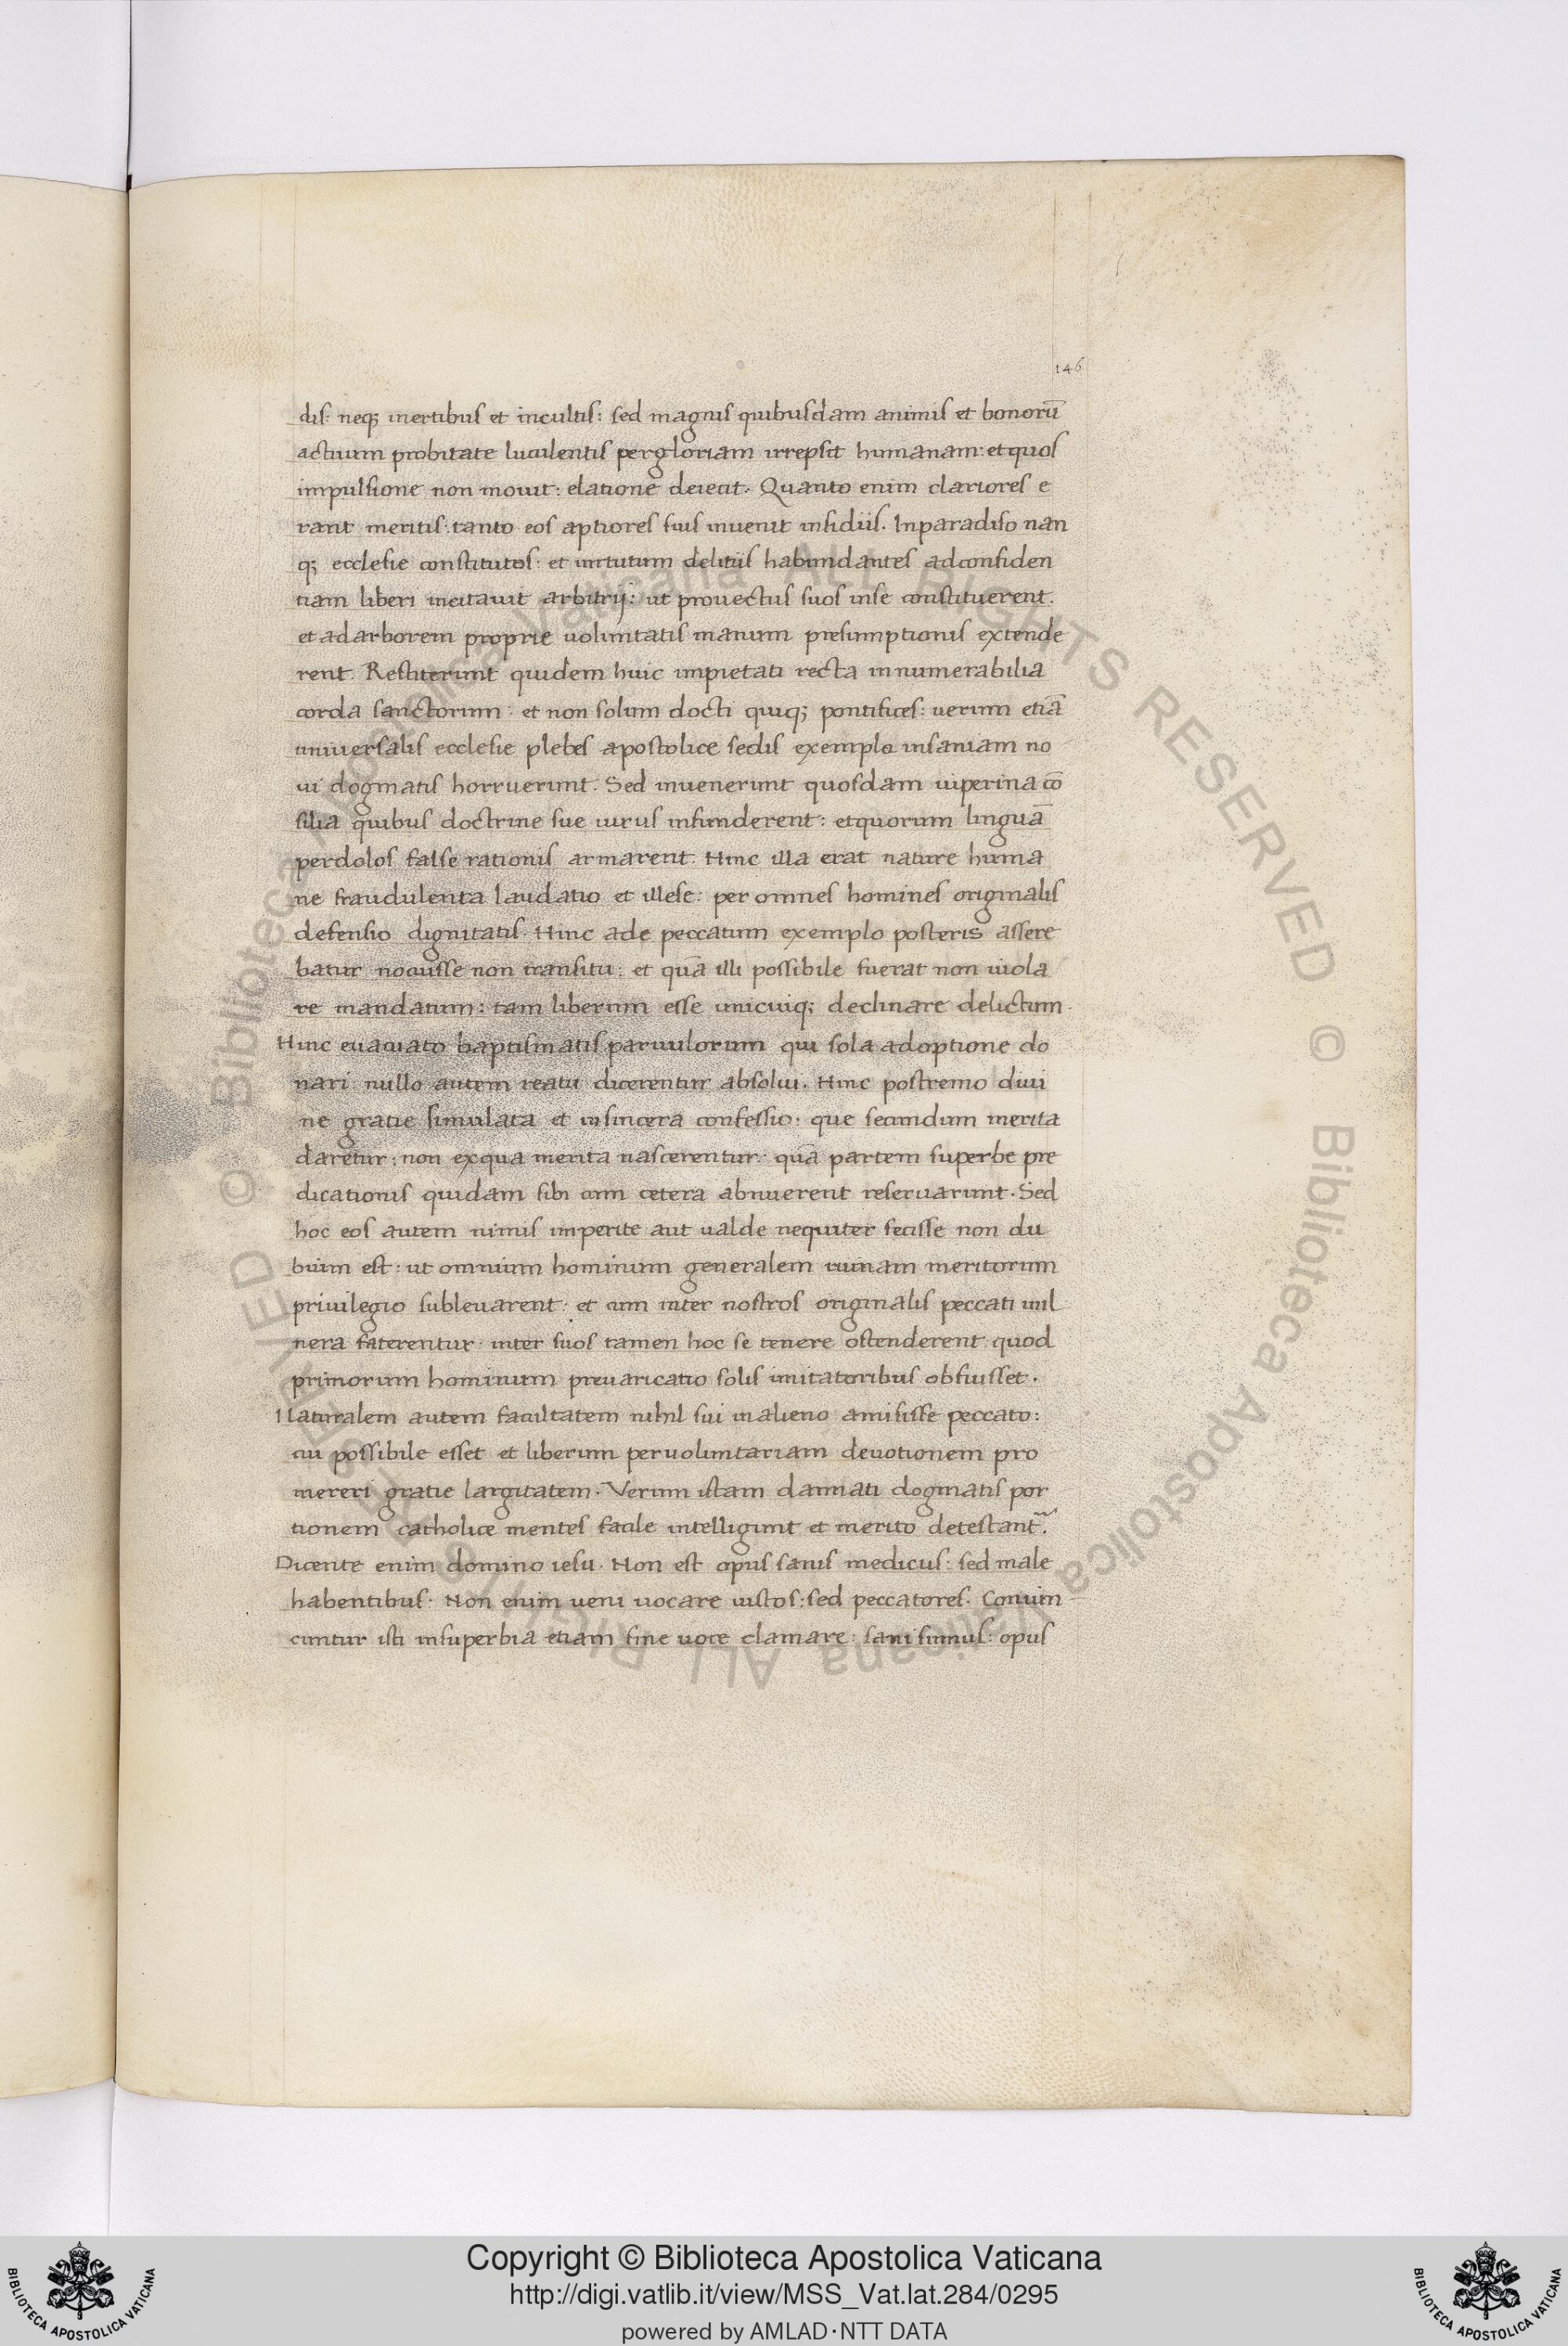 146
dis: neq; inertibus et incultis: sed magnis quibusdam animis et bonorū
actium probitate luculentis per gloriam irrepsit humanam: et quos
impulsione non mouit: elatione deiecit. Quanto enim clariores e
rant meritis: tanto eos aptiores suis inuenit insidiis. In paradiso nan
q; ecclesie constitutos: et uirtutum delitiis habundantes ad confiden
tiam liberi incitauit arbitrij: ut prouectus suos in se constituerent.
et ad arborem proprie uoluntatis manum presumptionis extende
rent. Restiterunt quidem huic impietati recta innumerabilia
corda sanctorum: et non solum docti quiq; pontifices: uerum etiā
uniuersalis ecclesie plebes apostolice sedis exemplo insaniam no
ui dogmatis horruerunt. Sed inuenerunt quosdam uiperina cō
silia quibus doctrine sue uirus infunderent: et quorum linguā
per dolos false rationis armarent. Hinc illa erat nature huma
ne fraudulenta laudatio et illese: per omnes homines originalis
defensio dignitatis. Hinc ade peccatum exemplo posteris assere
batur nocuisse non transitu: et quā illi possibile fuerat non uiola
re mandatum: tam liberum esse unicuiq; declinare delictum.
Hinc euacuato baptismatis paruulorum qui sola adoptione do
nari nullo autem reatu dicerentur absolui. Hinc postremo diui
ne gratie simulata et insincera confessio: que secundum merita
daretur: non ex qua merita nascerentur: quā partem superbe pre
dicationis quidam sibi cum cetera abnuerent reseruarunt. Sed
hoc eos autem nimis imperite aut ualde nequiter fecisse non du
bium est: ut omnium hominum generalem ruinam meritorum
priuilegio subleuarent: et cum inter nostros originalis peccati uul
nera faterentur: inter suos tamen hoc se tenere ostenderent: quod
primorum hominum preuaricatio solis imitatoribus obfuisset.
Naturalem autem facultatem nihil sui in alieno amisisse peccato:
cui possibile esset et liberum per uoluntariam deuotionem pro
mereri gratie largitatem. Verum istam damnati dogmatis por
tionem catholice mentes facile intelligunt et merito detestant~.
Dicente enim domino iesu. Non est opus sanis medicus: sed male
habentibus. Non enim ueni uocare iustos: sed peccatores. Conuin
cuntur isti in superbia etiam sine uoce clamare: sani sumus: opus
© Biblioteca Apostolica Vaticana ALL RIGHTS RESERVED © Biblioteca Apostolica Vaticana ALL RIGHTS RESERVED
BIBLIOTECA APOSTOLICA VATICANA
Copyright © Biblioteca Apostolica Vaticana
http://digi.vatlib.it/view/MSS_Vat.lat.284/0295
powered by AMLAD·NTT DATA
BIBLIOTECA APOSTOLICA VATICANA